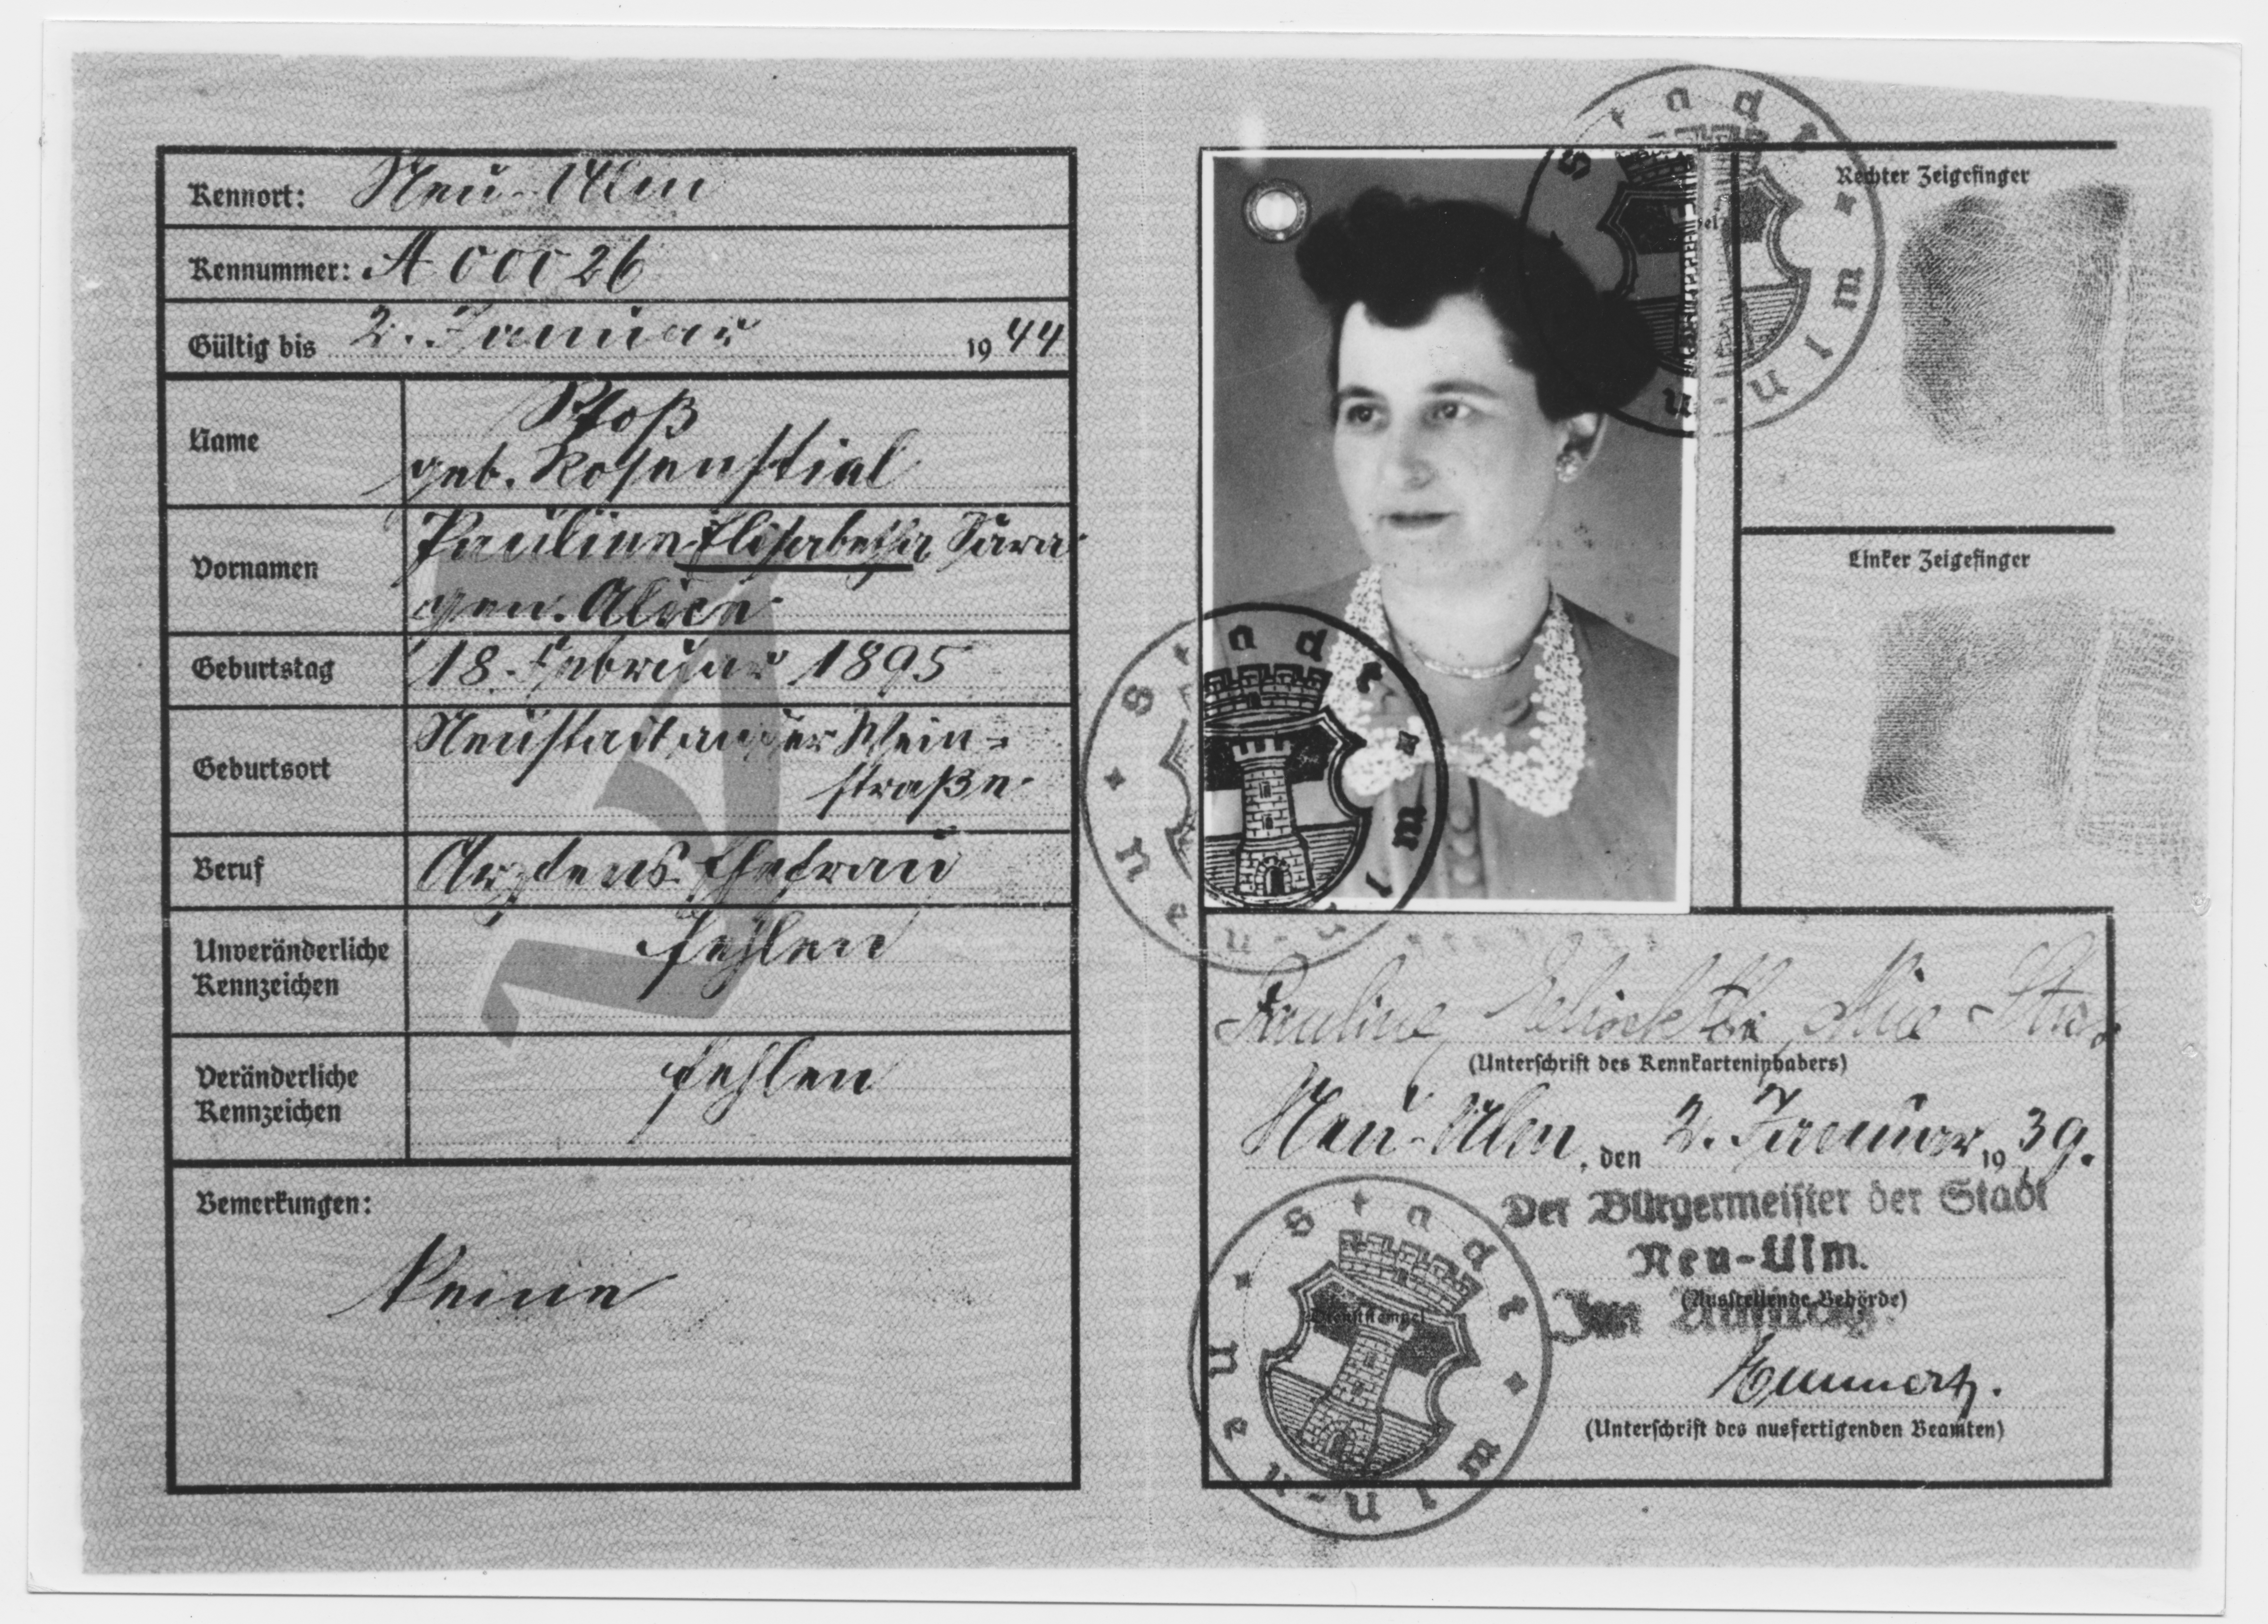 Kennort: Neu-Ulm
Kennummer: A 00026
Gültig bis 2. Januar 1944
Name
geb. Rosenstiel
Vornamen Pauline Elisabetha Sara
gen. Alice
Geburtstag 18. Februar 1895
Geburtsort Neustadt an der Wein=
straße
Beruf Arztens Ehefrau
Unveränderliche Kennzeichen fehlen
Veränderliche Kennzeichen fehlen
Bemerkungen:
Keine
Stadt Neu-Ulm
Rechter Zeigefinger
Linker Zeigefinger
Stadt Neu-Ulm
Pauline Alice
(Unterschrift des Kennkarteninhabers)
Neu-Ulm, den 2. Januar 1939.
Der Bürgermeister der Stadt
Neu-Ulm.
(Ausstellende Behörde)
Im Auftrag:
Dienststempel
Stadt Neu-Ulm
(Unterschrift des ausfertigenden Beamten)